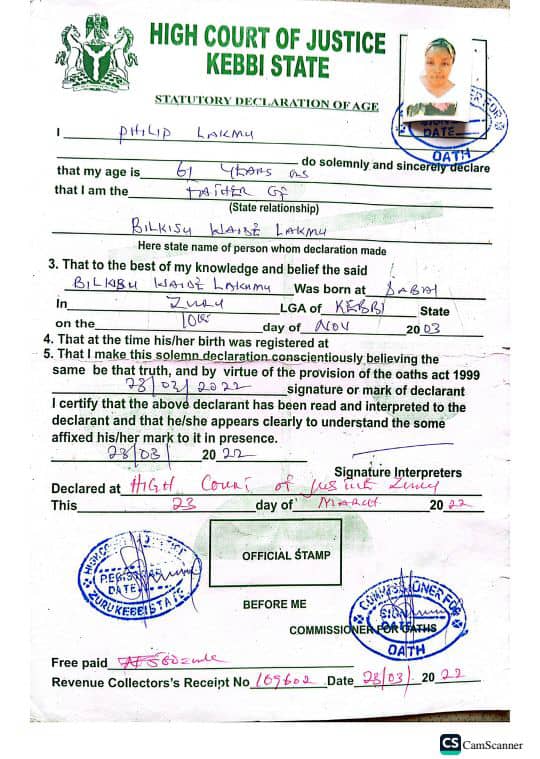 HIGH COURT OF JUSTICE
KEBBI STATE
STATUTORY DECLARATION OF AGE
COMMISSIONER FOR
SIGN
DATE
OATH
I PHILIP LAKMU
do solemnly and sincerely declare
that my age is 61 YEARS
that I am the FATHER OF
(State relationship)
BILKISU WAIDE LAKMU
Here state name of person whom declaration made
3. That to the best of my knowledge and belief the said
BILKISU WAIDE LAKMU Was born at DABAI
In ZURU LGA of KEBBI State
on the 10th day of NOV 2003
4. That at the time his/her birth was registered at
5. That I make this solemn declaration conscientiously believing the
same be that truth, and by virtue of the provision of the oaths act 1999
23/03/2022 signature or mark of declarant
I certify that the above declarant has been read and interpreted to the
declarant and that he/she appears clearly to understand the some
affixed his/her mark to it in presence.
23/03/ 20 22
Signature Interpreters
Declared at HIGH Court of Justice Zuru
This 23 day of MARCH 20 22
HIGH COURT OF JUSTICE
REGISTRAR
DATE
ZURU KEBBI STATE
OFFICIAL STAMP
BEFORE ME
COMMISSIONER FOR OATHS
COMMISSIONER FOR
SIGN
DATE
OATH
Free paid
Revenue Collectors's Receipt No 169602 Date 23/03/ 20 22
CS CamScanner